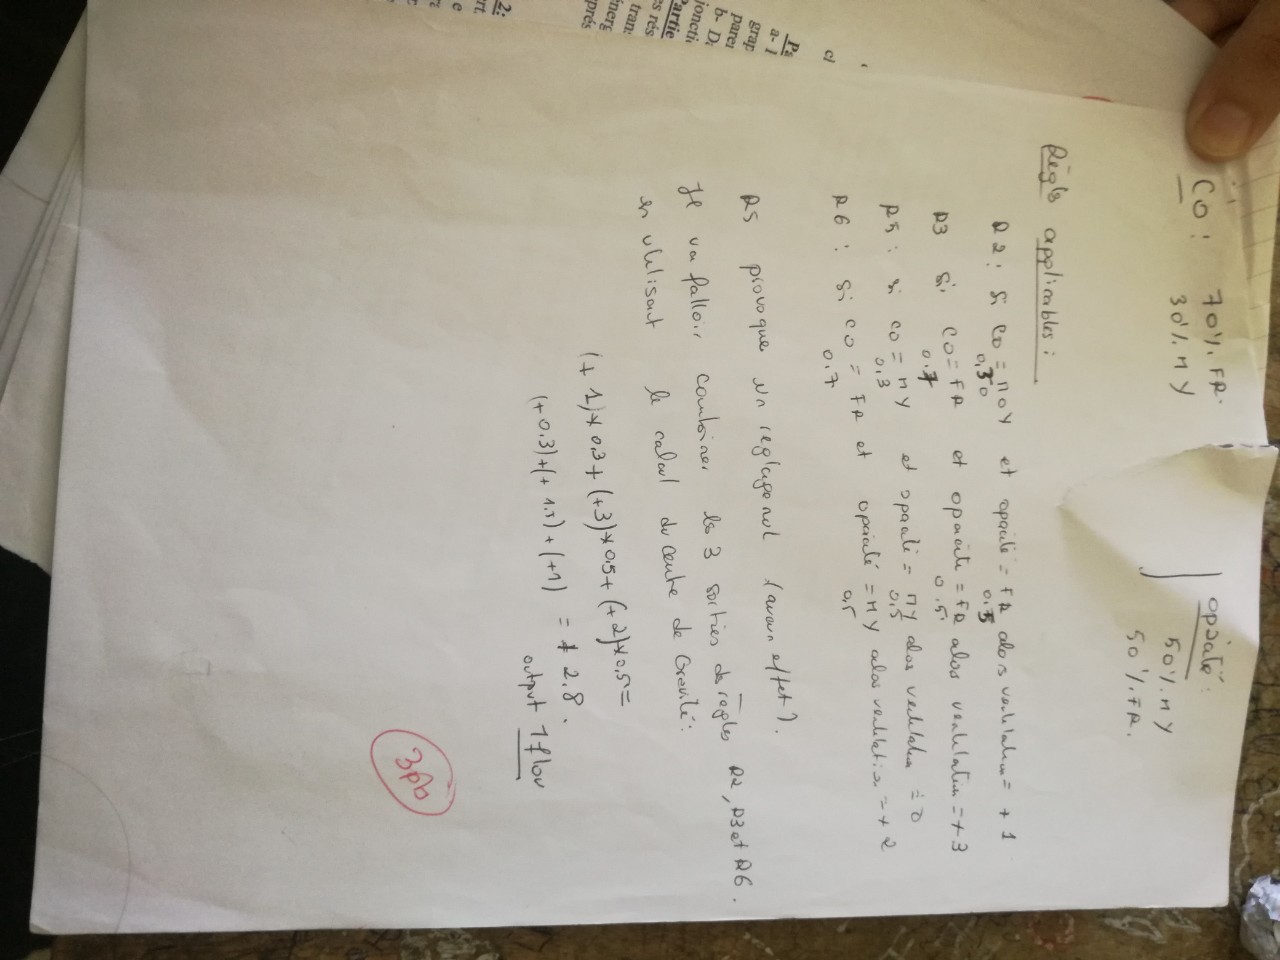 CO : 70%. FR.
30%. MY
opacité :
50%. MY
50%. FR.
Règls applicables :
R2 : Si CO = MOY et opacité = FR alors ventilation = + 1
0,30 0.5
R3 si CO = FR et opacite = FR alos ventilation = + 3
0.7 0.5
R5 : si CO = MY et opacité = MY alos ventilation = 0
0.3 0.5
R6 : Si CO = FR et opacité = MY alos ventilation = + 2
0.7 0,5
R5 provoque un reglage nul (aucun effet).
Il va falloir combiner les 3 sorties de règles R2, R3 et R6.
en utilisant le calcul du centre de Gravité :
(+ 1) * 0.3 + (+3) * 0.5 + (+ 2) * 0,5 =
(+ 0.3) + (+ 1.5) + (+1) = + 2.8.
output 1 flou
3pts
cl
Pa
a- l
grap
parei
b- D
joncti
Partie
es rés
tran
énerg
prés
2:
ert.
e